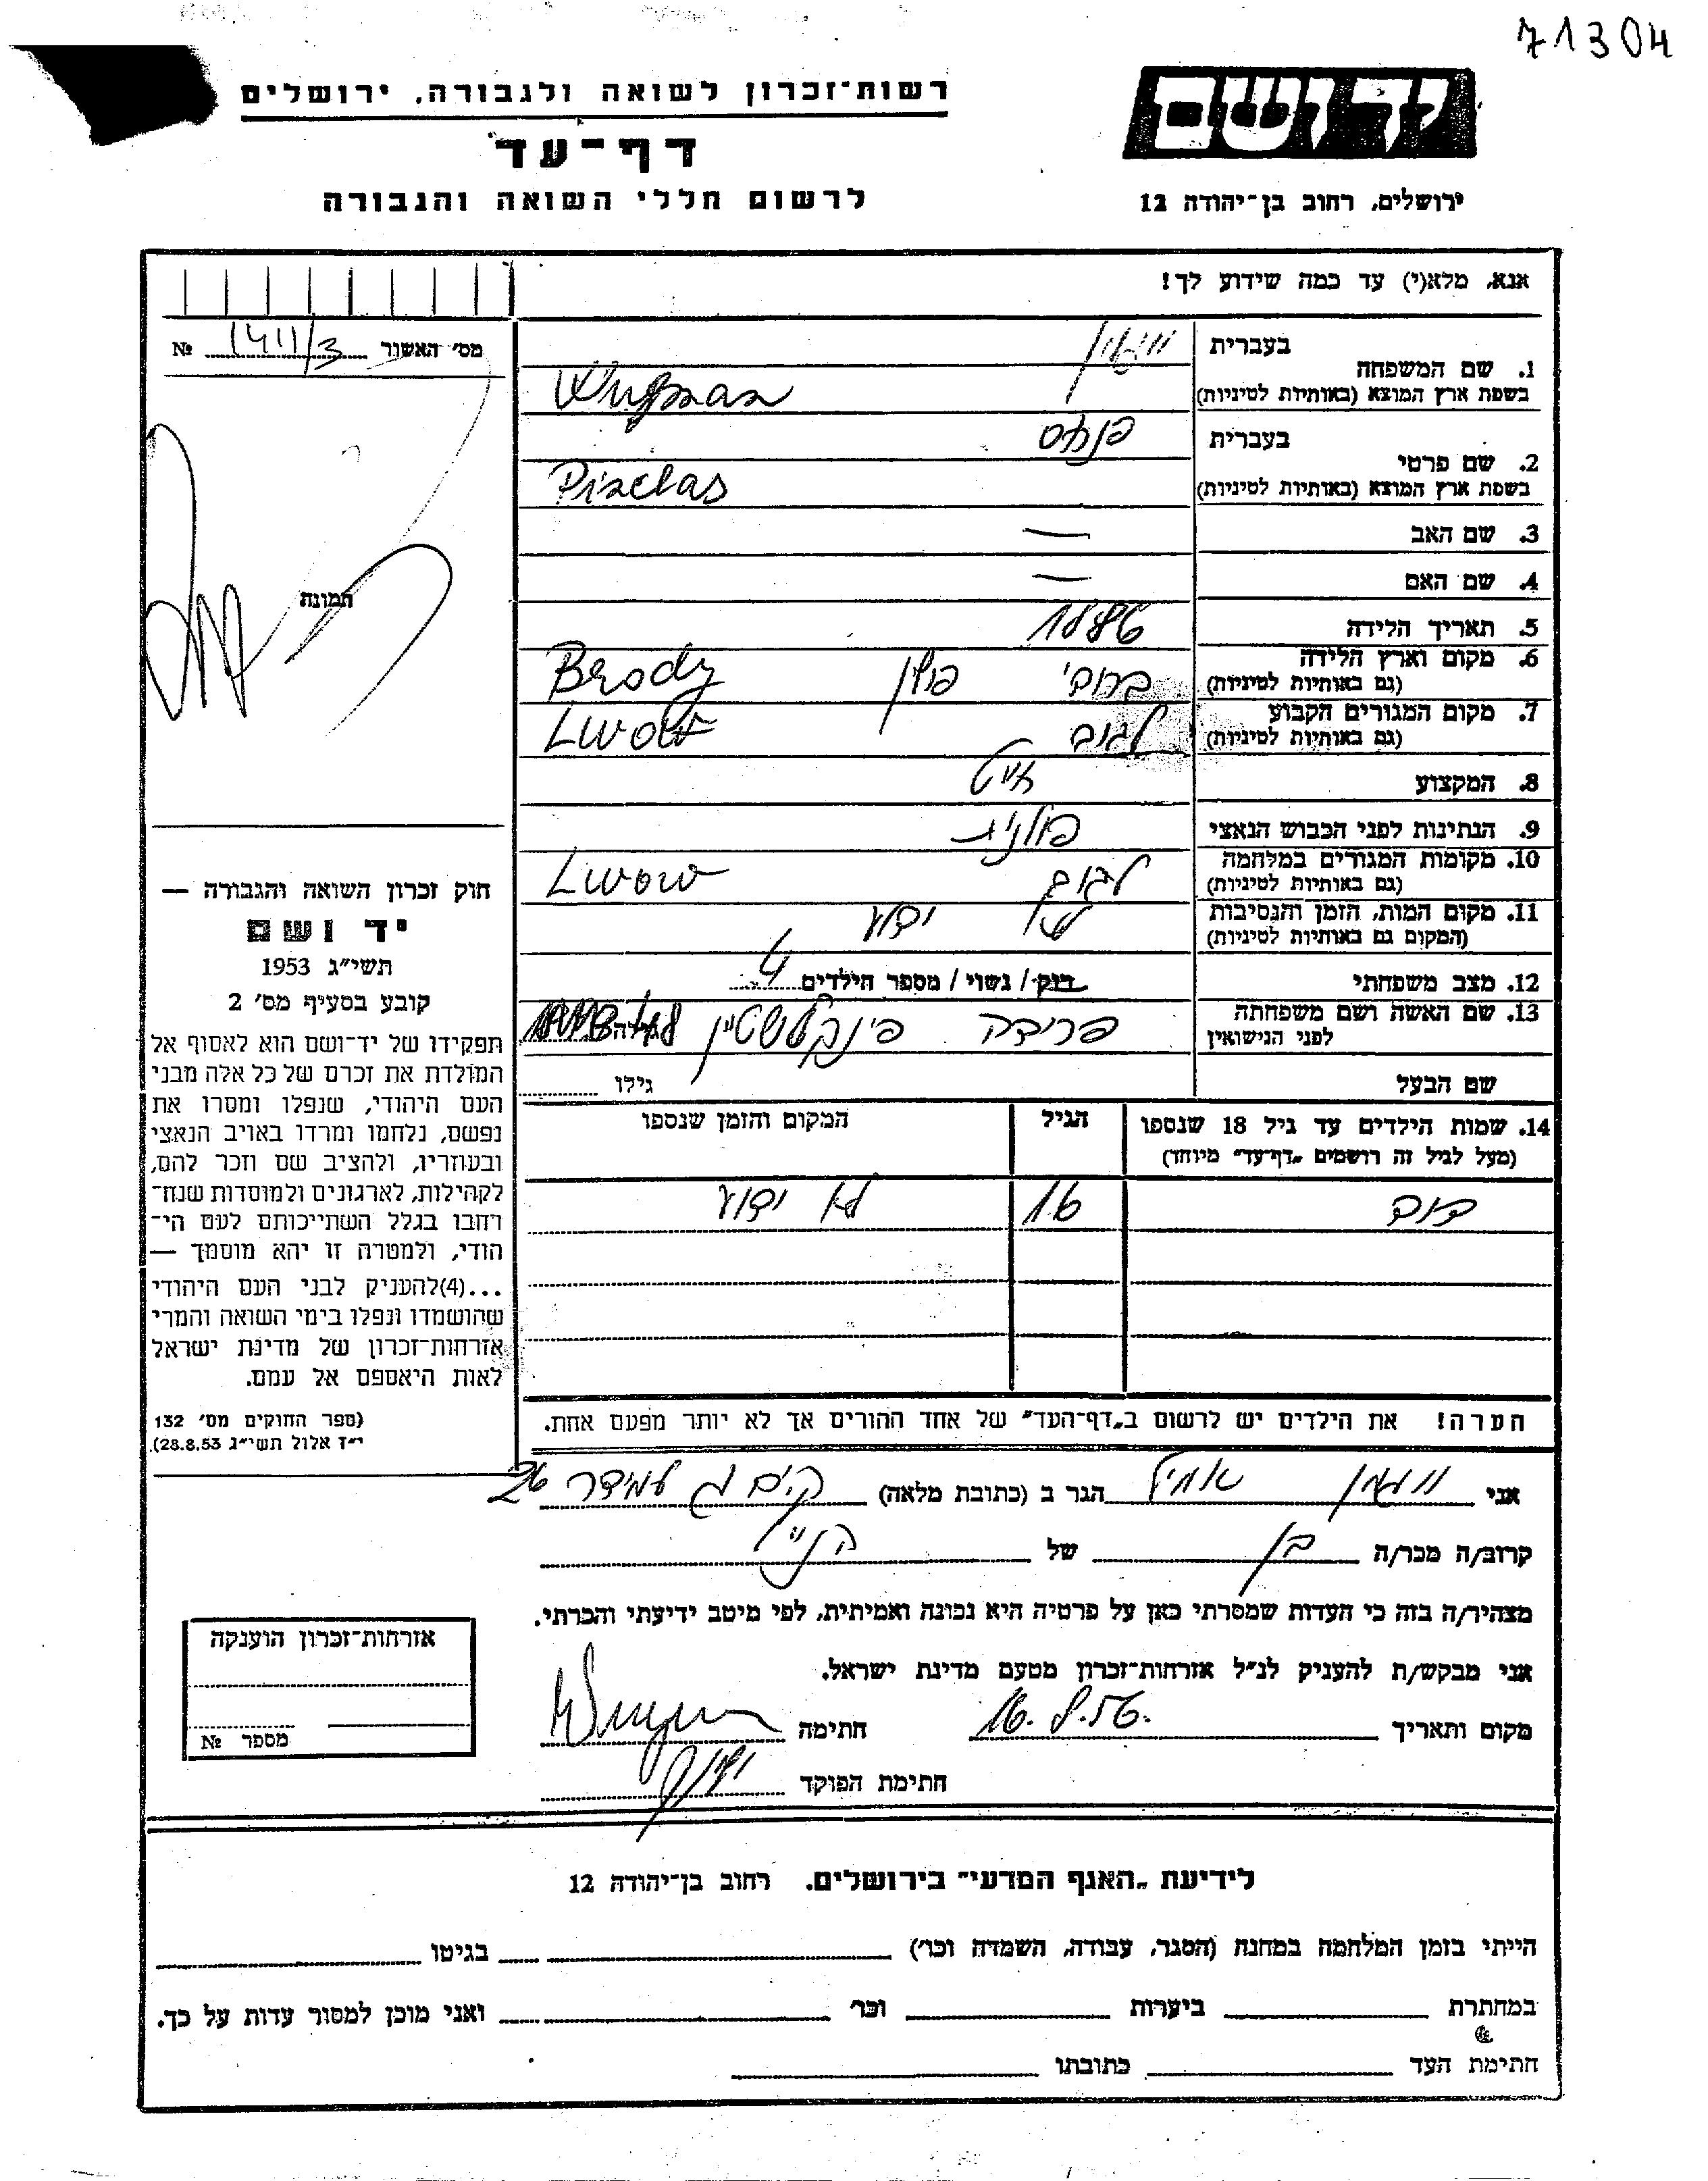 71304
רשות־זכרון לשואה ולגבורה, ירושלים
דף־עד
לרשום חללי השואה והגבורה
יד ושם
ירושלים, רחוב בן־יהודה 12
אנא, מלא(י) עד כמה שידוע לך!
מס׳ האשור 1411/3 №
תמונה
1. שם המשפחה בעברית
בשפת ארץ המוצא (באותיות לטיניות) Wugman
2. שם פרטי בעברית פנחס
בשפת ארץ המוצא (באותיות לטיניות) Pinclas
3. שם האב —
4. שם האם —
5. תאריך הלידה 1886
6. מקום וארץ הלידה ברודי פולין Brody
(גם באותיות לטיניות)
7. מקום המגורים הקבוע לבוב Lwow
(גם באותיות לטיניות)
8. המקצוע חייט
9. הנתינות לפני הכבוש הנאצי פולנית
10. מקומות המגורים במלחמה לבוב Lwow
(גם באותיות לטיניות)
11. מקום המות, הזמן והנסיבות לא ידוע
(המקום גם באותיות לטיניות)
12. מצב משפחתי רוק / נשוי / מספר הילדים 4
13. שם האשה ושם משפחתה פרידה פינקלשטיין גילה 48
לפני הנישואין
שם הבעל גילו
14. שמות הילדים עד גיל 18 שנספו הגיל המקום והזמן שנספו
(מעל לגיל זה רושמים „דף־עד” מיוחד)
דוב 16 לא ידוע
הערה! את הילדים יש לרשום ב„דף־העד” של אחד ההורים אך לא יותר מפעם אחת.
חוק זכרון השואה והגבורה —
יד ושם
תשי״ג 1953
קובע בסעיף מס׳ 2
תפקידו של יד־ושם הוא לאסוף אל
המולדת את זכרם של כל אלה מבני
העם היהודי, שנפלו ומסרו את
נפשם, נלחמו ומרדו באויב הנאצי
ובעוזריו, ולהציב שם וזכר להם,
לקהילות, לארגונים ולמוסדות שנח־
רחבו בגלל השתייכותם לעם הי־
הודי, ולמטרה זו יהא מוסמך —
...(4)להעניק לבני העם היהודי
שהושמדו ונפלו בימי השואה והמרי
אזרחות־זכרון של מדינת ישראל
לאות היאספם אל עמם.
(ספר החוקים מס׳ 132
י״ז אלול תשי״ג 28.8.53).
אני הגר ב (כתובת מלאה) עמידר 26
קרוב/ה מכר/ה בן של הנ״ל
מצהיר/ה בזה כי העדות שמסרתי כאן על פרטיה היא נכונה ואמיתית, לפי מיטב ידיעתי והכרתי.
אני מבקש/ת להעניק לנ״ל אזרחות־זכרון מטעם מדינת ישראל.
מקום ותאריך 16.8.56. חתימה
חתימת הפוקד
אזרחות־זכרון הוענקה
מספר №
לידיעת „האגף המדעי” בירושלים. רחוב בן־יהודה 12
הייתי בזמן המלחמה במחנה (הסגר, עבודה, השמדה וכו׳) בגיטו
במחתרת ביערות וכו׳ ואני מוכן למסור עדות על כך.
חתימת העד כתובתו